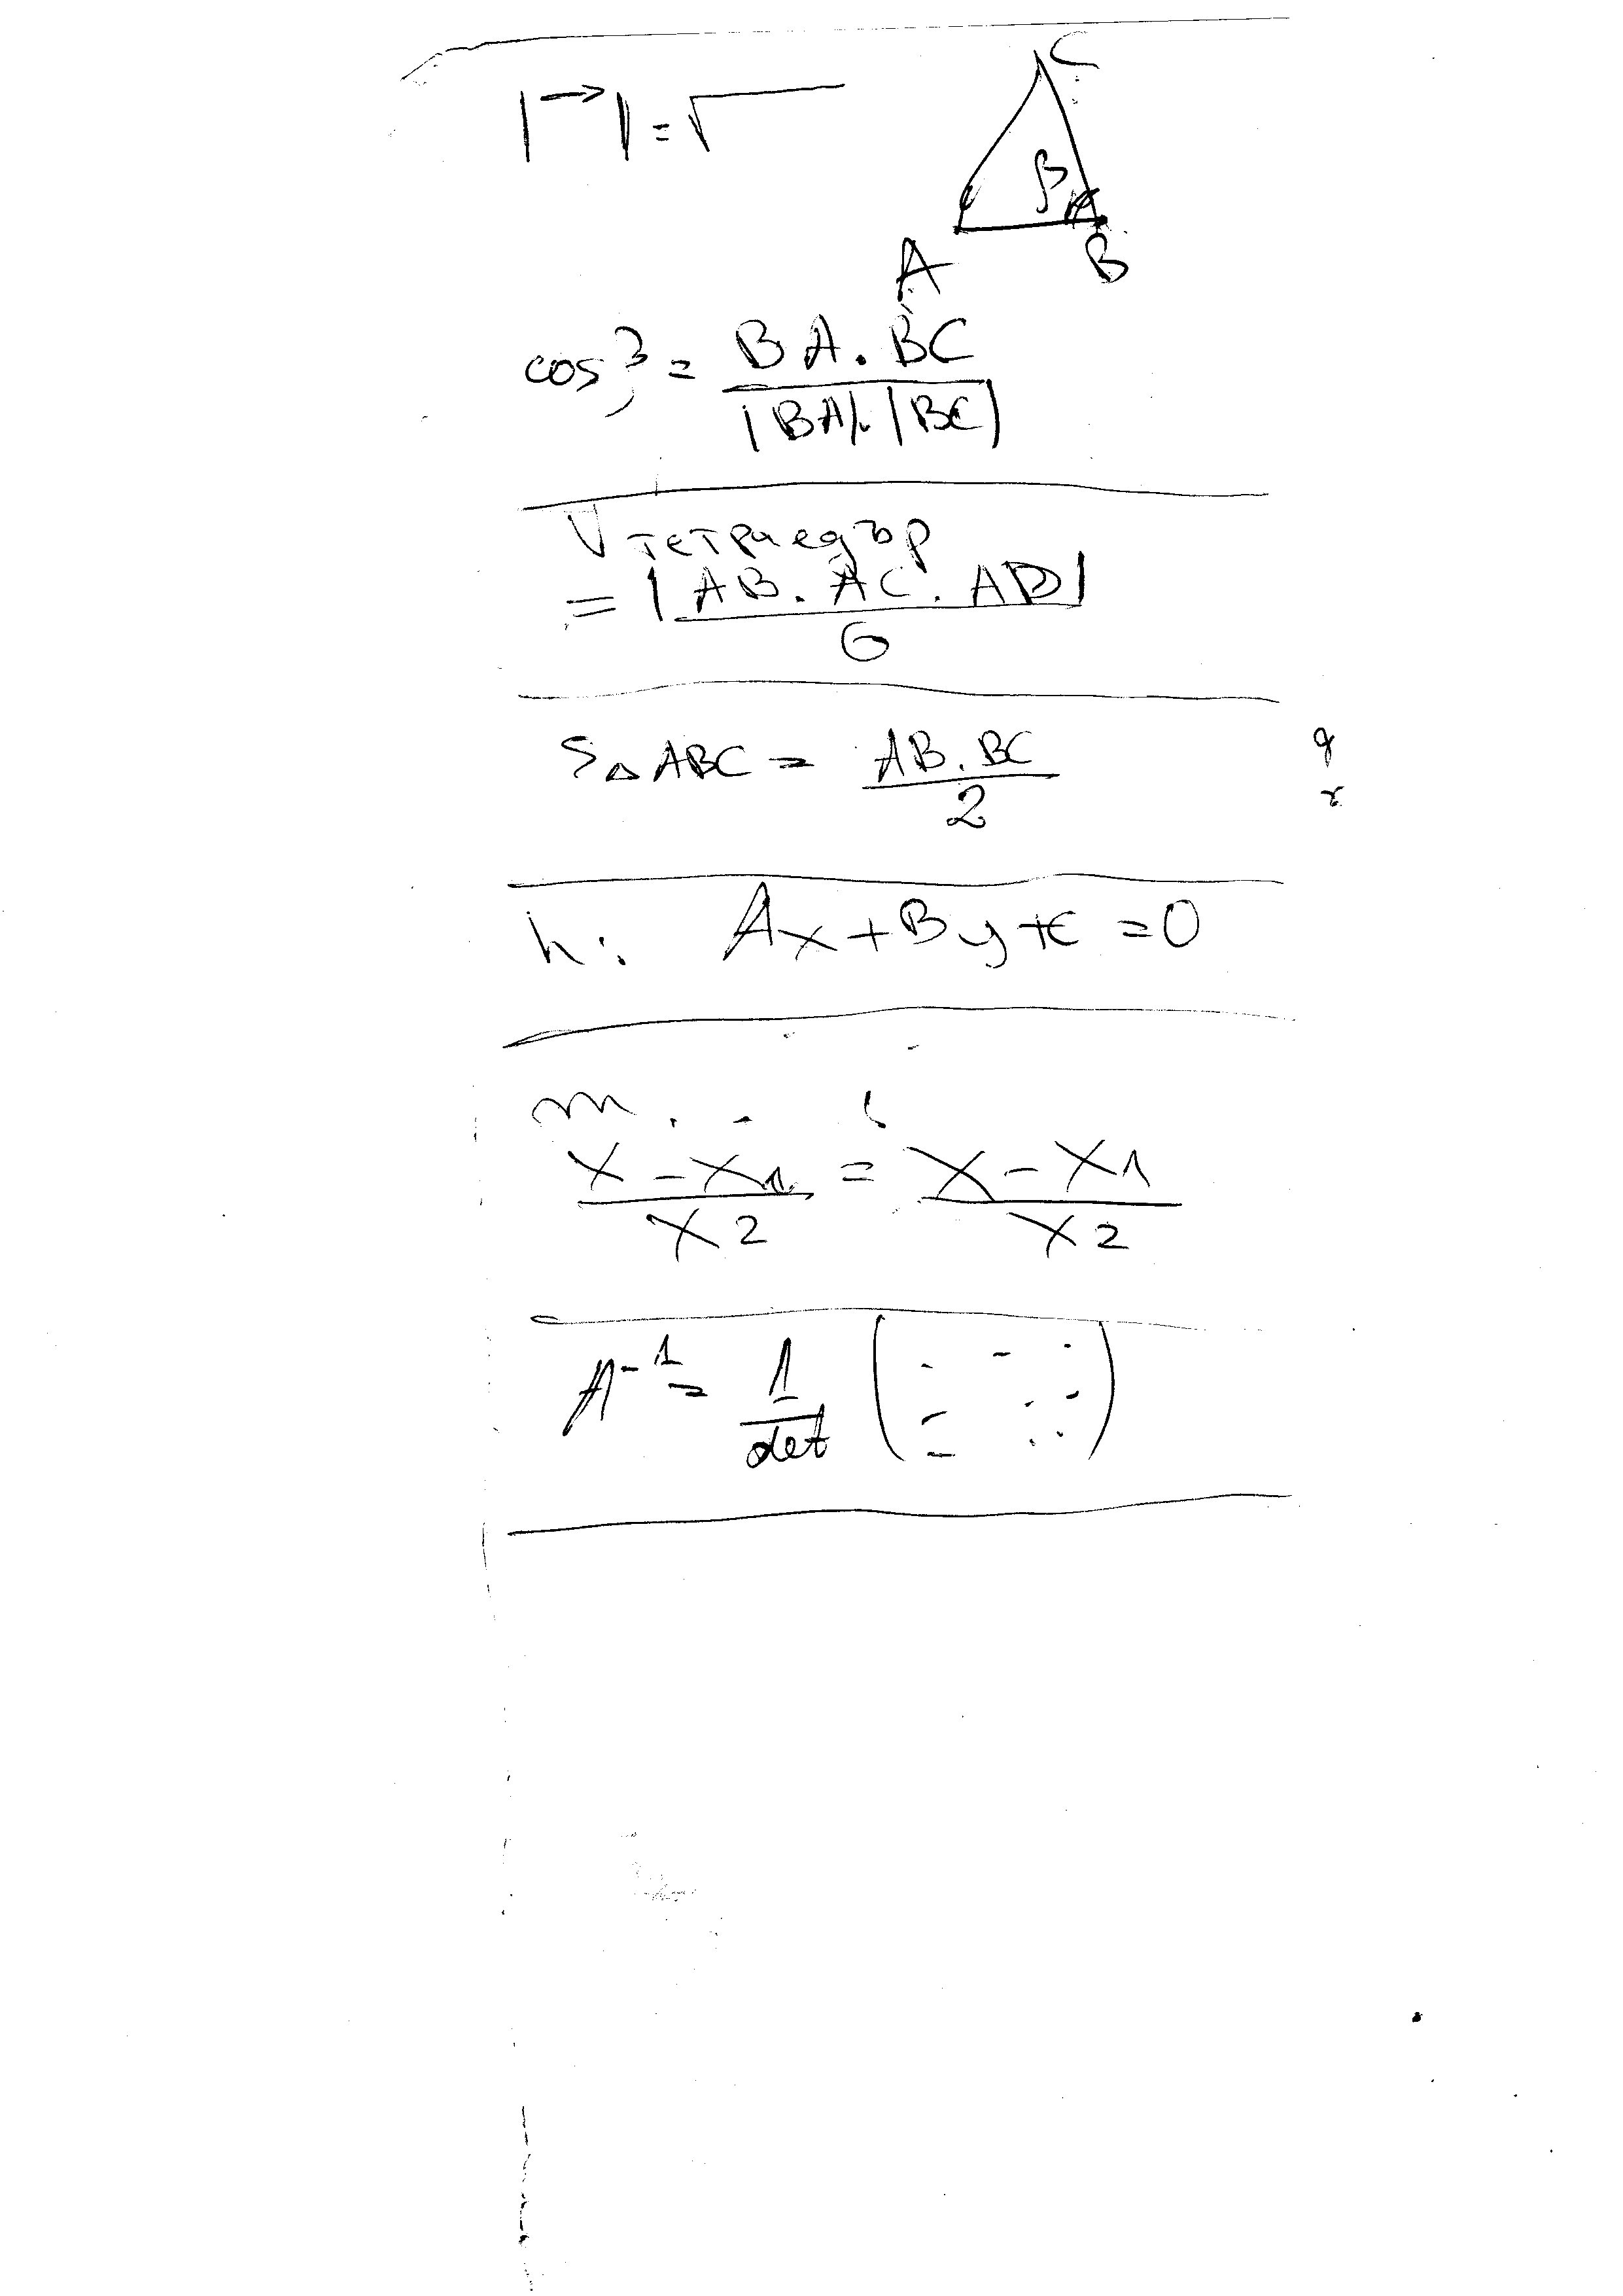 |→| = √
C
β
A
B
cos β = BA . BC
|BA| . |BC|
V тетраедър
= |AB . AC . AD|
6
S△ABC = AB . BC
2
h: Ax + By + C = 0
m
x - x1 = x - x1
x2 x2
A-1 = 1
det